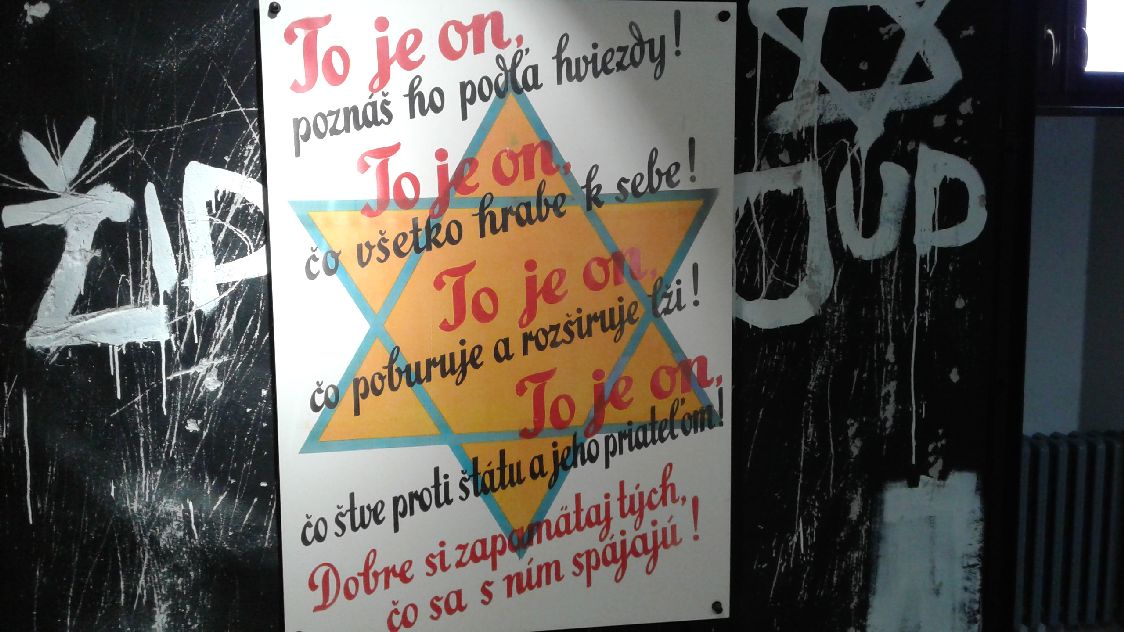 To je on,
poznáš ho podľa hviezdy!
To je on,
čo všetko hrabe k sebe!
To je on,
čo poburuje a rozširuje lži!
To je on,
čo štve proti štátu a jeho priateľom!
Dobre si zapamätaj tých,
čo sa s ním spájajú!
ŽID
JUD